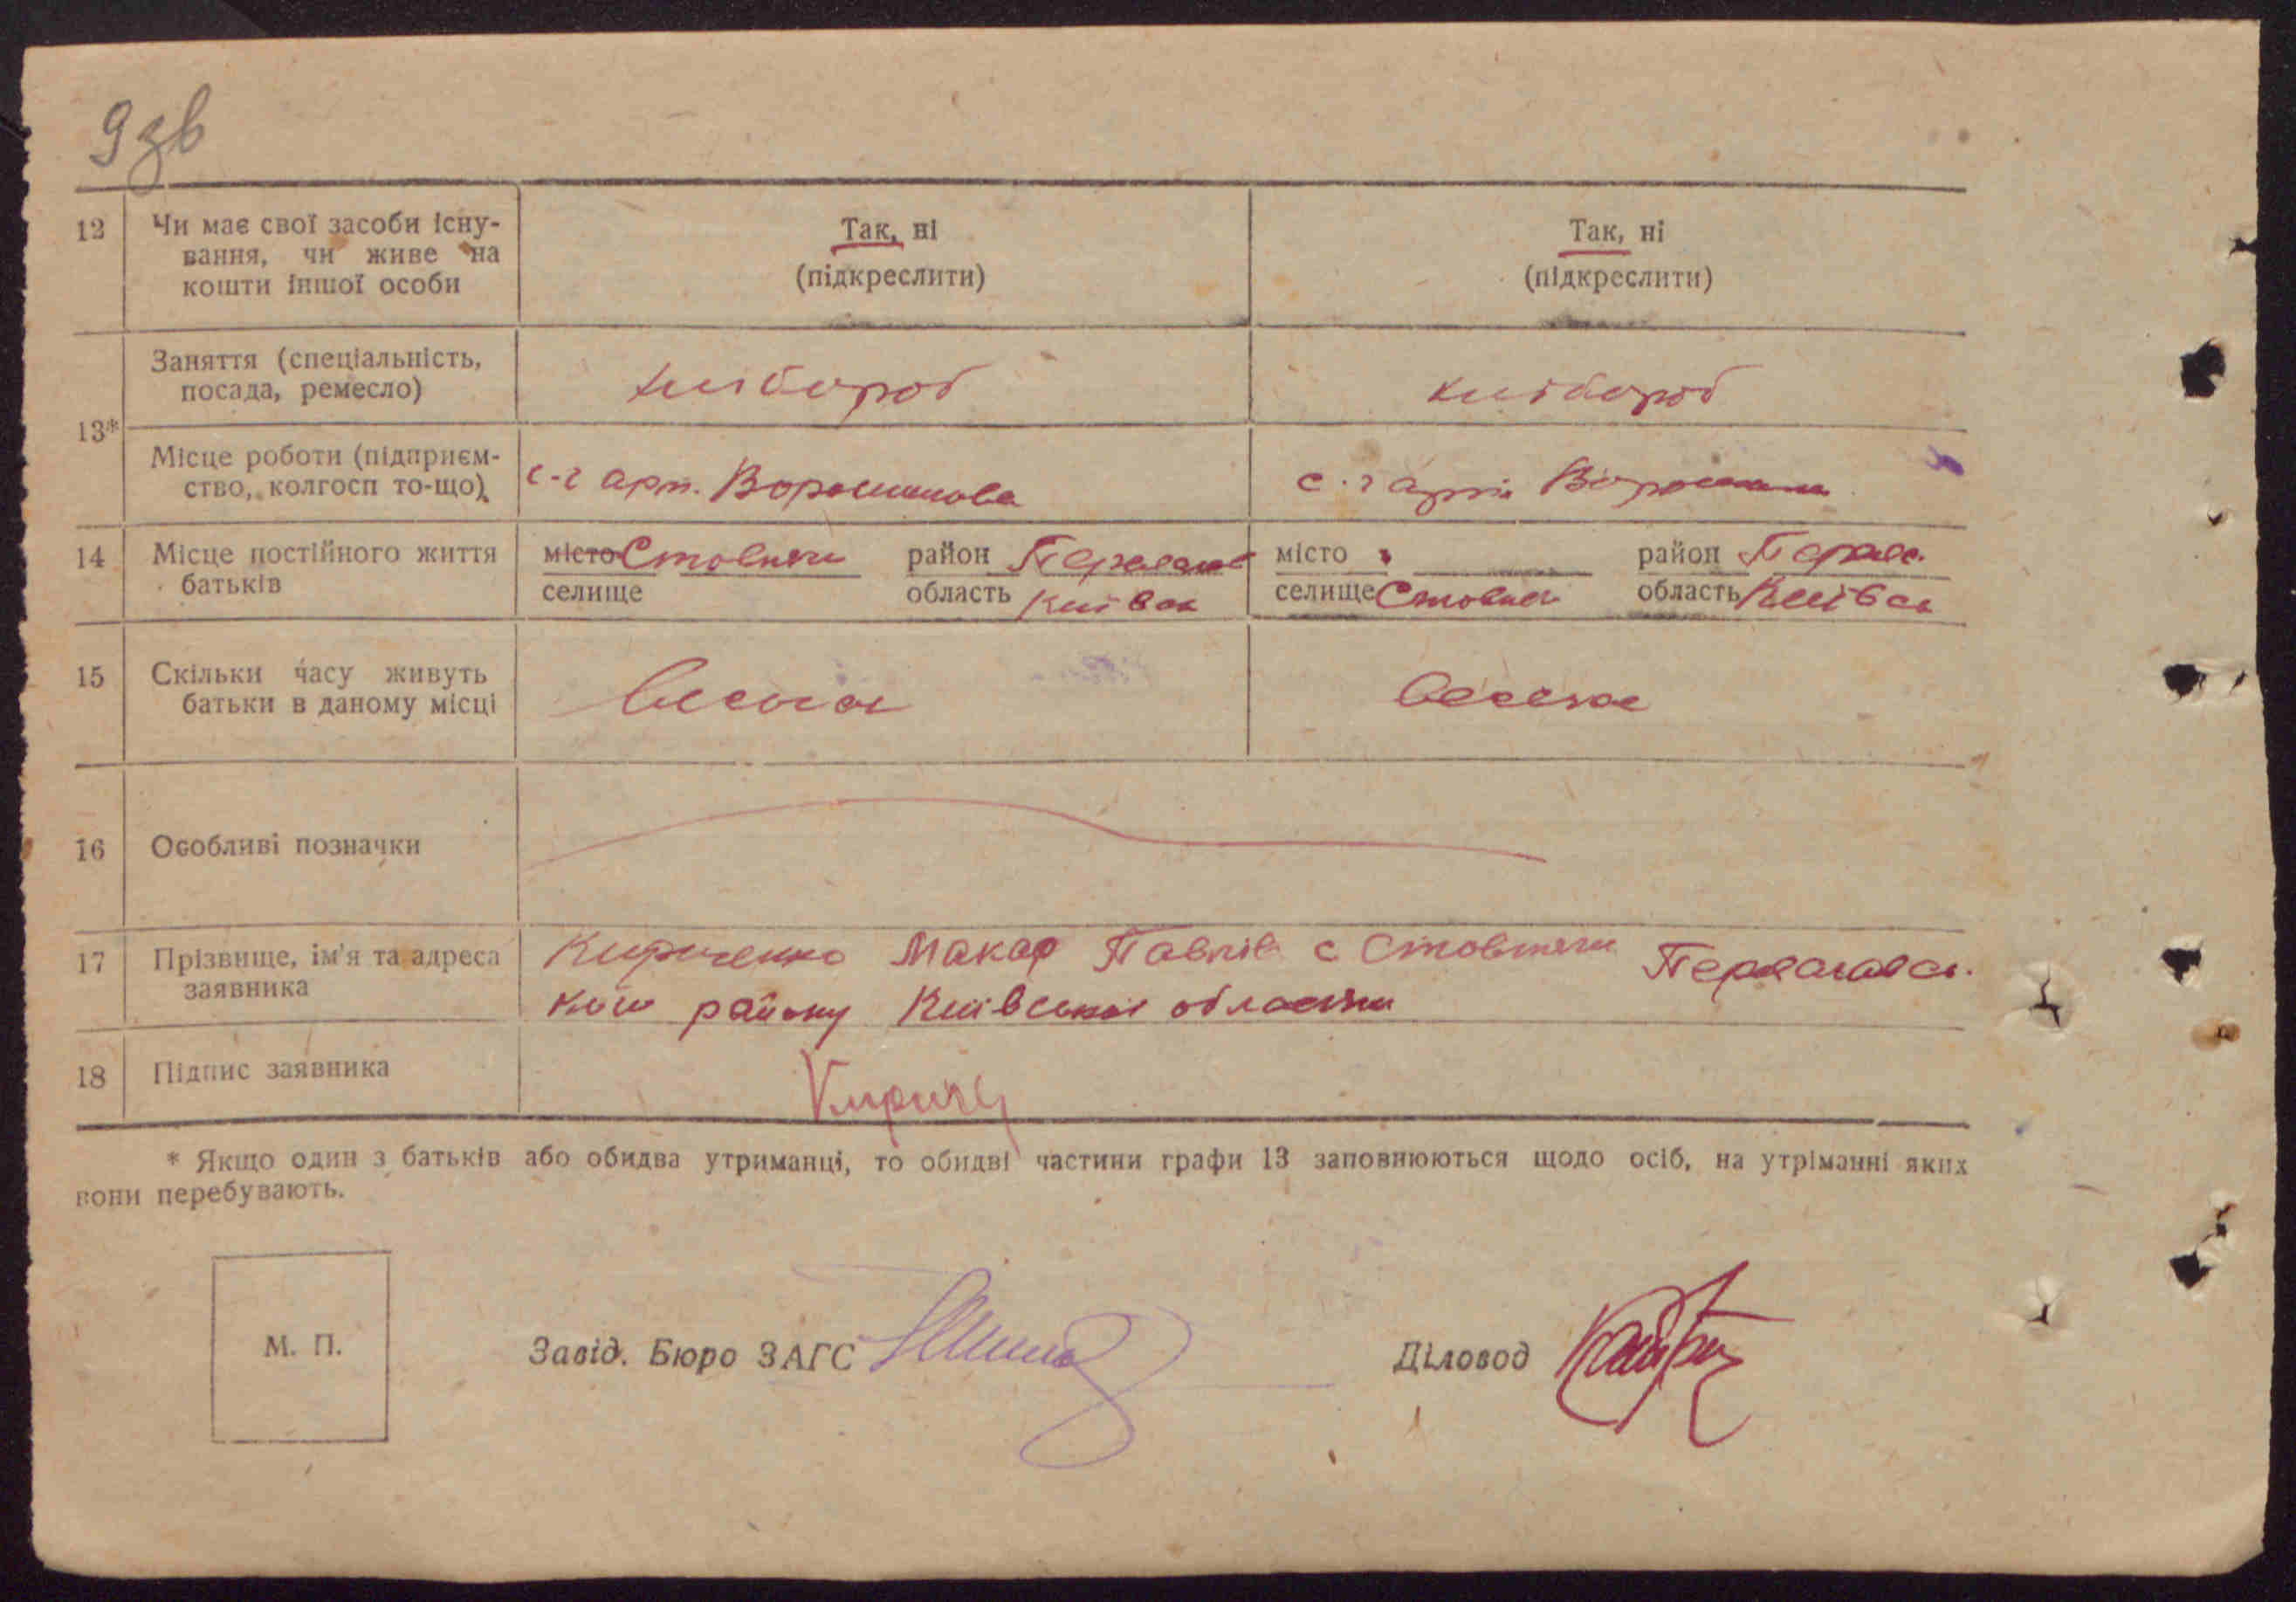 9 зв
12 Чи має свої засоби існу- Так, ні Так, ні
вання, чи живе на (підкреслити) (підкреслити)
кошти іншої особи
Заняття (спеціальність, хлібороб хлібороб
посада, ремесло)
13*
Місце роботи (підприєм- с-г арт. Ворошилова с. г арт.
ство, колгосп то-що)
14 Місце постійного життя місто Стовпяги район місто район Переяс.
батьків селище область Київськ селище Стовпяги область Київськ
15 Скільки часу живуть
батьки в даному місці
16 Особливі позначки
17 Прізвище, ім'я та адреса Кириченко Макар Павлів с Стовпяги Переяславсь-
заявника кого району Київської области
18 Підпис заявника Кириче
* Якщо один з батьків або обидва утриманці, то обидві частини графи 13 заповнюються щодо осіб, на утріманні яких
вони перебувають.
М. П. Завід. Бюро ЗАГС Діловод